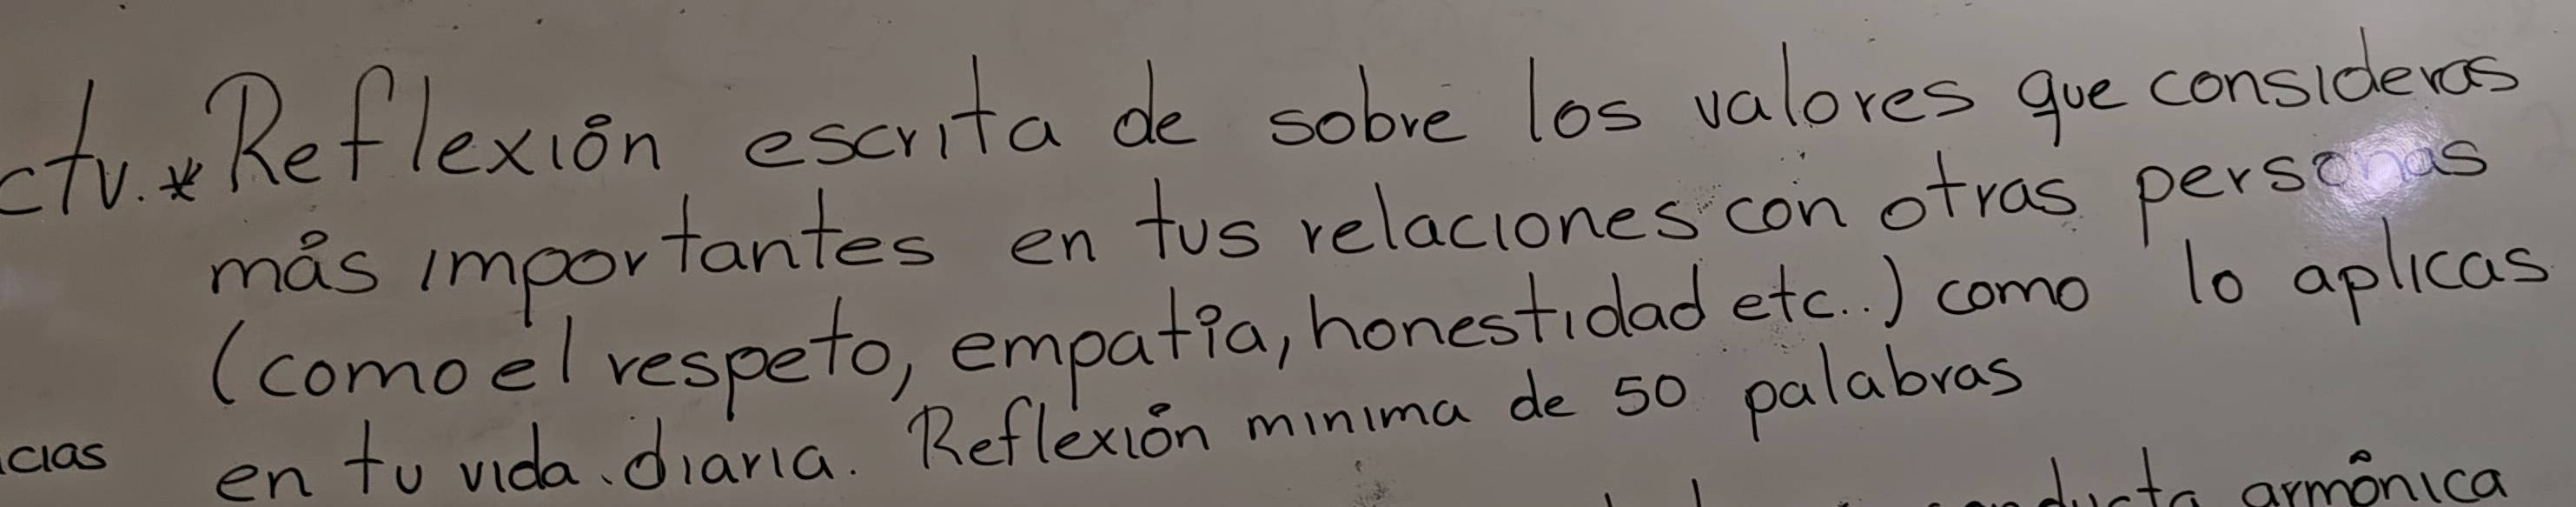 ctv. * Reflexión escrita de sobre los valores que consideras
más importantes en tus relaciones con otras personas
(como el respeto, empatía, honestidad etc..) como lo aplicas
cias en tu vida diaria. Reflexión minima de 50 palabras
armónica